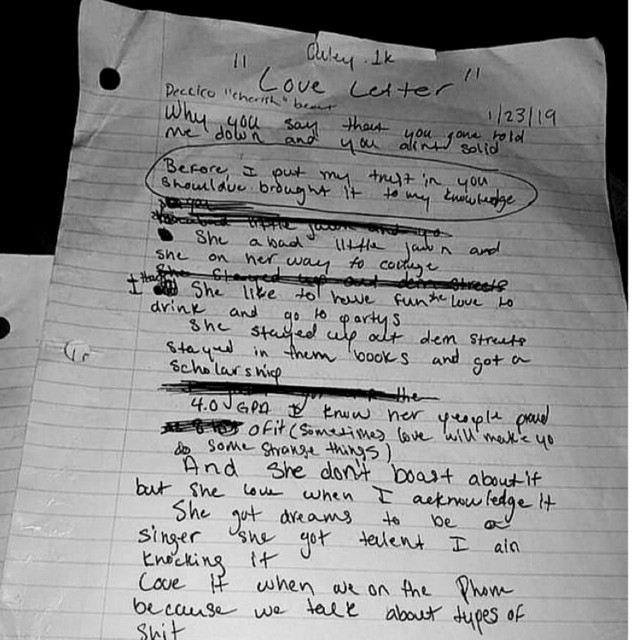 Quley.1k
" Love Letter "
Deccico "cherish" beat
1/23/19
Why you say that you gone hold
me down and you aint solid
Before I put my trust in you
shouldve brought it to my knowledge
little jawn and
She a bad little jawn and
she on her way to college
She stayed up out dem streets
She like to have fun she love to
drink and go to partys
She stayed up out dem streets
stayed in them books and got a
scholarship
the
4.0 GPA I know her people proud
of it (sometimes love will make yo
do some strange things)
And she don't boast about it
but she love when I acknowledge it
She got dreams to be a
singer she got talent I ain
knocking it
Love it when we on the phone
because we talk about types of
shit